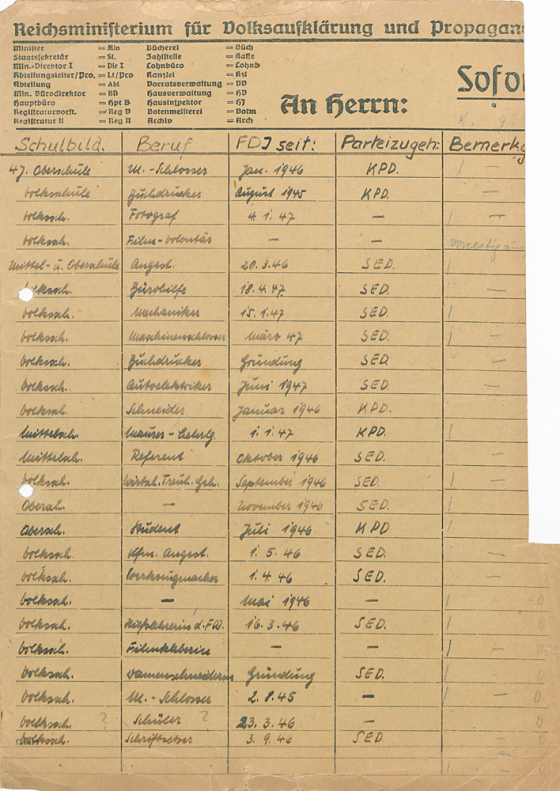 Reichsministerium für Volksaufklärung und Propagan
Minister = Min Bücherei = Büch
Staatssekretär = St. Zahlstelle = Kasse
Min.-Direktor I = Dir I Lohnbüro = Lohnb
Abteilungsleiter/Pro. = Lt/Pro Kanzlei = Kzl
Abteilung = Abt Vorratsverwaltung = DD
Min. Bürodirektor = BD Hausverwaltung = HD
Hauptbüro = Hpt B Hausinspektor = HJ
Registraturvorst. = Reg D Botenmeisterei = Botm
Registratur II = Reg II Archiv = Arch
Sofor
An Herrn:
Schulbild. Beruf FDJ seit: Parteizugeh: Bemerkg
47. Oberschule M.-Schlosser Jan. 1946 KPD. –
Volksschule Buchdrucker August 1945 KPD. –
Volkssch. Fotograf 4.1.47 – –
Volkssch. Film-Volontär – –
Mittel- u. Oberschule Angest. 20.3.46 SED.
Volkssch. Bürohilfe 18.4.47 SED. –
Volkssch. Mechaniker 15.1.47 SED.
Volkssch. Maschinenschlosser März 47 SED. –
Volkssch. Buchdrucker Gründung SED. –
Volkssch. Autoelektriker Juni 1947 SED. –
Volkssch. Schneider Januar 1946 KPD.
Mittelsch. Maurer- 1.1.47 KPD.
Mittelsch. Referent Oktober 1946 SED. –
Volkssch. Wirtsch. Treuh. Geh. September 1946 SED. –
Obersch. – November 1946 SED. –
Obersch. Student Juli 1946 KPD –
Volkssch. Kfm. Angest. 1.5.46 SED. –
Volkssch. Werkzeugmacher 1.4.46 SED. –
Volkssch. – Mai 1946 – –
Volkssch. d. FDJ. 16.3.46 SED. –
Volkssch. – – –
Volkssch. Damenschneiderin Gründung SED. –
Volkssch. M.-Schlosser 2.8.45 – –
Volkssch. ? Schüler ? 23.3.46 –
Volkssch. Schriftsetzer 3.9.46 SED –